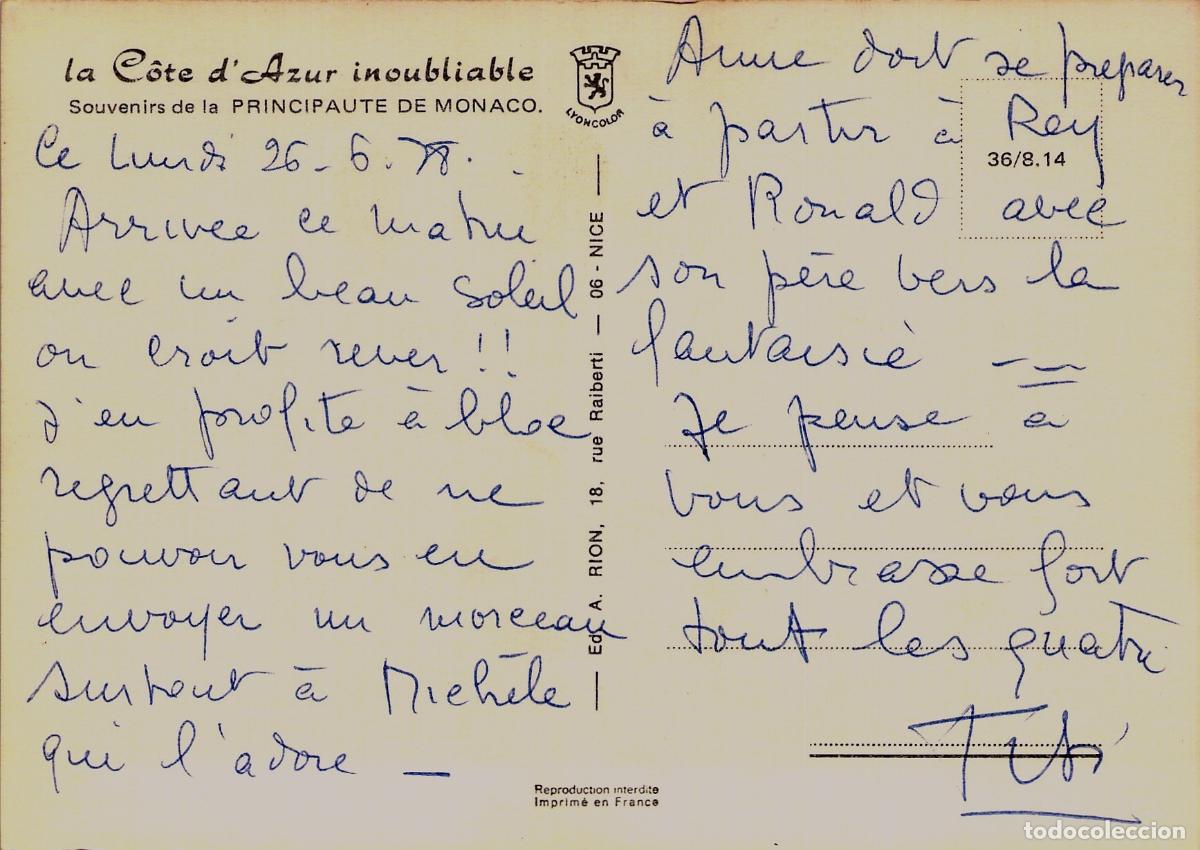 la Côte d'Azur inoubliable
Souvenirs de la PRINCIPAUTE DE MONACO.
LYONCOLOR
Ce Lundi 26-6.78.
Arrivée ce matin
avec un beau soleil
on croit rever !!
J'en profite à bloc
regrettant de ne
pouvoir vous en
envoyer un morceau
surtout à Michèle
qui l'adore —
Ed. A. RION, 18, rue Raiberti — 06 - NICE
Reproduction interdite
Imprimé en France
36/8.14
Anne doit se préparer
à partir à Rey
et Ronald avec
son père vers la
fantaisie
Je pense à
vous et vous
embrasse fort
tout les quatre
Titi
todocoleccion